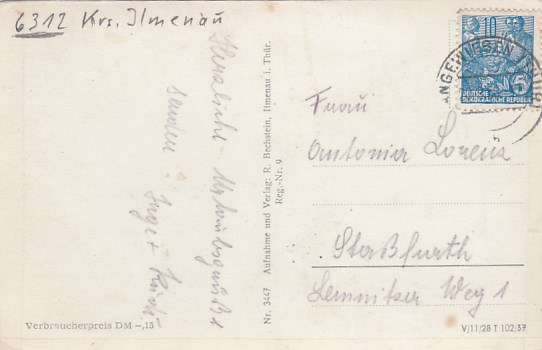 6312 Krs. Ilmenau
Herzliche Urlaubsgrüße
senden
Inge +
Nr. 3447 Aufnahme und Verlag: R. Bechstein, Ilmenau i. Thür.
Reg.-Nr. 9
Verbraucherpreis DM -,15
10
5
DEUTSCHE
DEMOKRATISCHE REPUBLIK
LANGEWIESEN
Frau
Antonia Lorenz
Staßfurth
Lemnitzer Weg 1
V/11/28 T 102/57